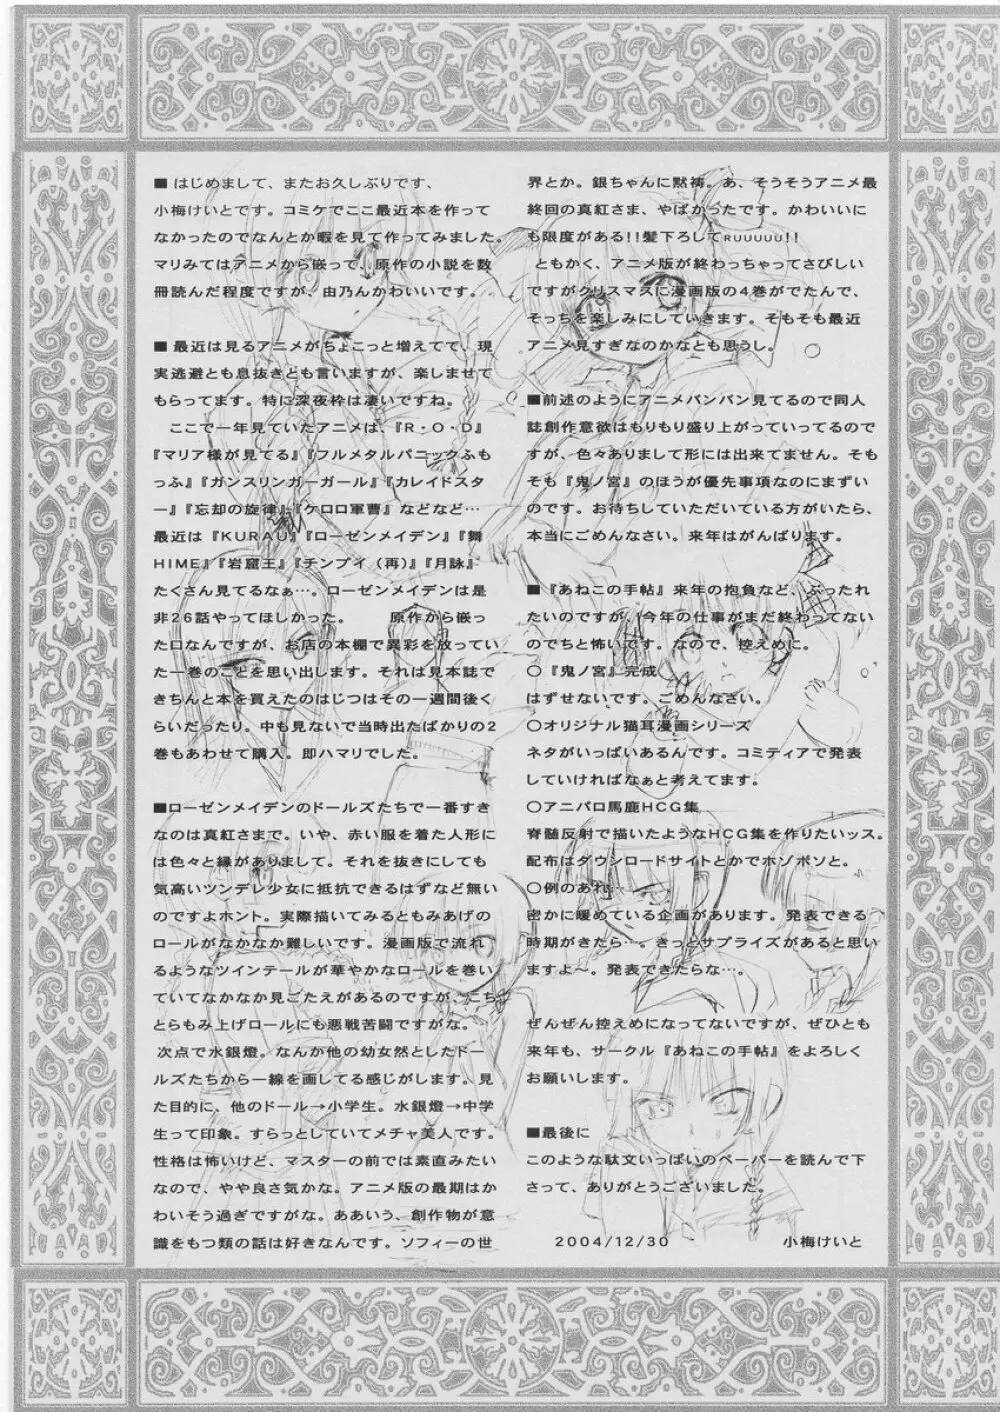 ■ はじめまして、またお久しぶりです、
小梅けいとです。コミケでここ最近本を作って
なかったのでなんとか暇を見て作ってみました。
マリみてはアニメから嵌って、原作の小説を数
冊読んだ程度ですが、由乃んかわいいです。
■ 最近は見るアニメがちょこっと増えてて、現
実逃避とも息抜きとも言いますが、楽しませて
もらってます。特に深夜枠は凄いですね。
ここで一年見ていたアニメは、『R・O・D』
『マリア様が見てる』『フルメタルパニックふも
っふ』『ガンスリンガーガール』『カレイドスタ
ー』『忘却の旋律』『ケロロ軍曹』などなど…
最近は『KURAU』『ローゼンメイデン』『舞
HIME』『岩窟王』『チンプイ（再）』『月詠』
たくさん見てるなぁ…。ローゼンメイデンは是
非26話やってほしかった。　　原作から嵌っ
た口なんですが、お店の本棚で異彩を放ってい
た一巻のことを思い出します。それは見本誌で
きちんと本を買えたのはじつはその一週間後く
らいだったり。中も見ないで当時出たばかりの2
巻もあわせて購入。即ハマリでした。
■ローゼンメイデンのドールズたちで一番すき
なのは真紅さまで。いや、赤い服を着た人形に
は色々と縁がありまして。それを抜きにしても
気高いツンデレ少女に抵抗できるはずなど無い
のですよホント。実際描いてみるともみあげの
ロールがなかなか難しいです。漫画版で流れ
るようなツインテールが華やかなロールを巻い
ていてなかなか見ごたえがあるのですが、こち
とらもみ上げロールにも悪戦苦闘ですがな。
次点で水銀燈。なんか他の幼女然としたドー
ルズたちから一線を画してる感じがします。見
た目的に、他のドール→小学生。水銀燈→中学
生って印象。すらっとしていてメチャ美人です。
性格は怖いけど、マスターの前では素直みたい
なので、やや良さ気かな。アニメ版の最期はか
わいそう過ぎですがな。ああいう、創作物が意
識をもつ類の話は好きなんです。ソフィーの世
界とか。銀ちゃんに黙祷。あ、そうそうアニメ最
終回の真紅さま、やばかったです。かわいいに
も限度がある!!髪下ろしてRUUUUU!!
ともかく、アニメ版が終わっちゃってさびしい
ですがクリスマスに漫画版の4巻がでたんで、
そっちを楽しみにしていきます。そもそも最近
アニメ見すぎなのかなとも思うし。
■前述のようにアニメバンバン見てるので同人
誌創作意欲はもりもり盛り上がっていってるので
すが、色々ありまして形には出来てません。そも
そも『鬼ノ宮』のほうが優先事項なのにまずい
のです。お待ちしていただいている方がいたら、
本当にごめんなさい。来年はがんばります。
■『あねこの手帖』来年の抱負など、ぶったれ
たいのですが、今年の仕事がまだ終わってない
のでちと怖いです。なので、控えめに。
○『鬼ノ宮』完成
はずせないです、ごめんなさい。
○オリジナル猫耳漫画シリーズ
ネタがいっぱいあるんです。コミティアで発表
していければなぁと考えてます。
○アニパロ馬鹿HCG集
脊髄反射で描いたようなHCG集を作りたいッス。
配布はダウンロードサイトとかでポソポソと。
○例のあれ…
密かに暖めている企画があります。発表できる
時期がきたら…。きっとサプライズがあると思い
ますよ～。発表できたらな…。
ぜんぜん控えめになってないですが、ぜひとも
来年も、サークル『あねこの手帖』をよろしく
お願いします。
■最後に
このような駄文いっぱいのペーパーを読んで下
さって、ありがとうございました。
2004/12/30　　小梅けいと